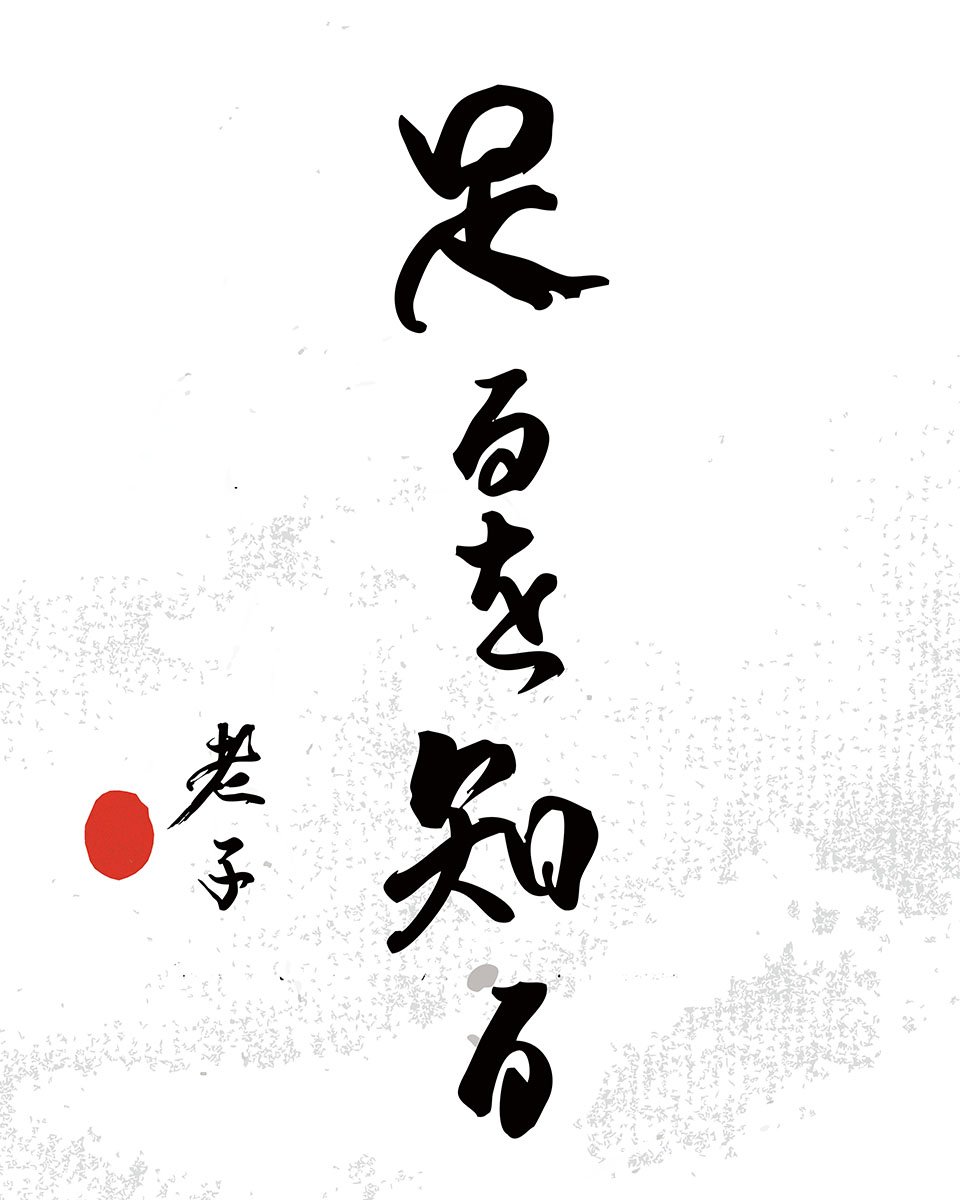 足るを知る
老子